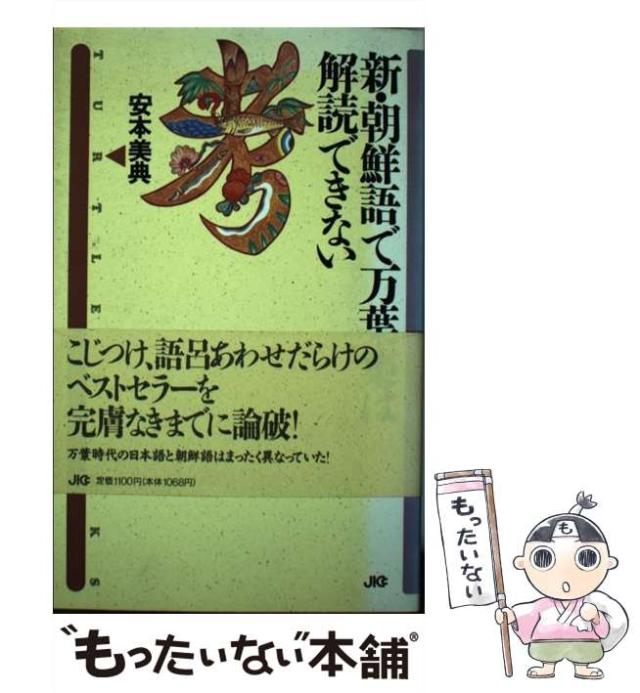 新・朝鮮語で万葉集は
解読できない
安本美典
TURTLE
KS
こじつけ、語呂あわせだらけの
ベストセラーを
完膚なきまでに論破!
万葉時代の日本語と朝鮮語はまったく異なっていた!
JICC 定価1100円(本体1068円)
JICC
"もったいない"本舗®
もったいない
も